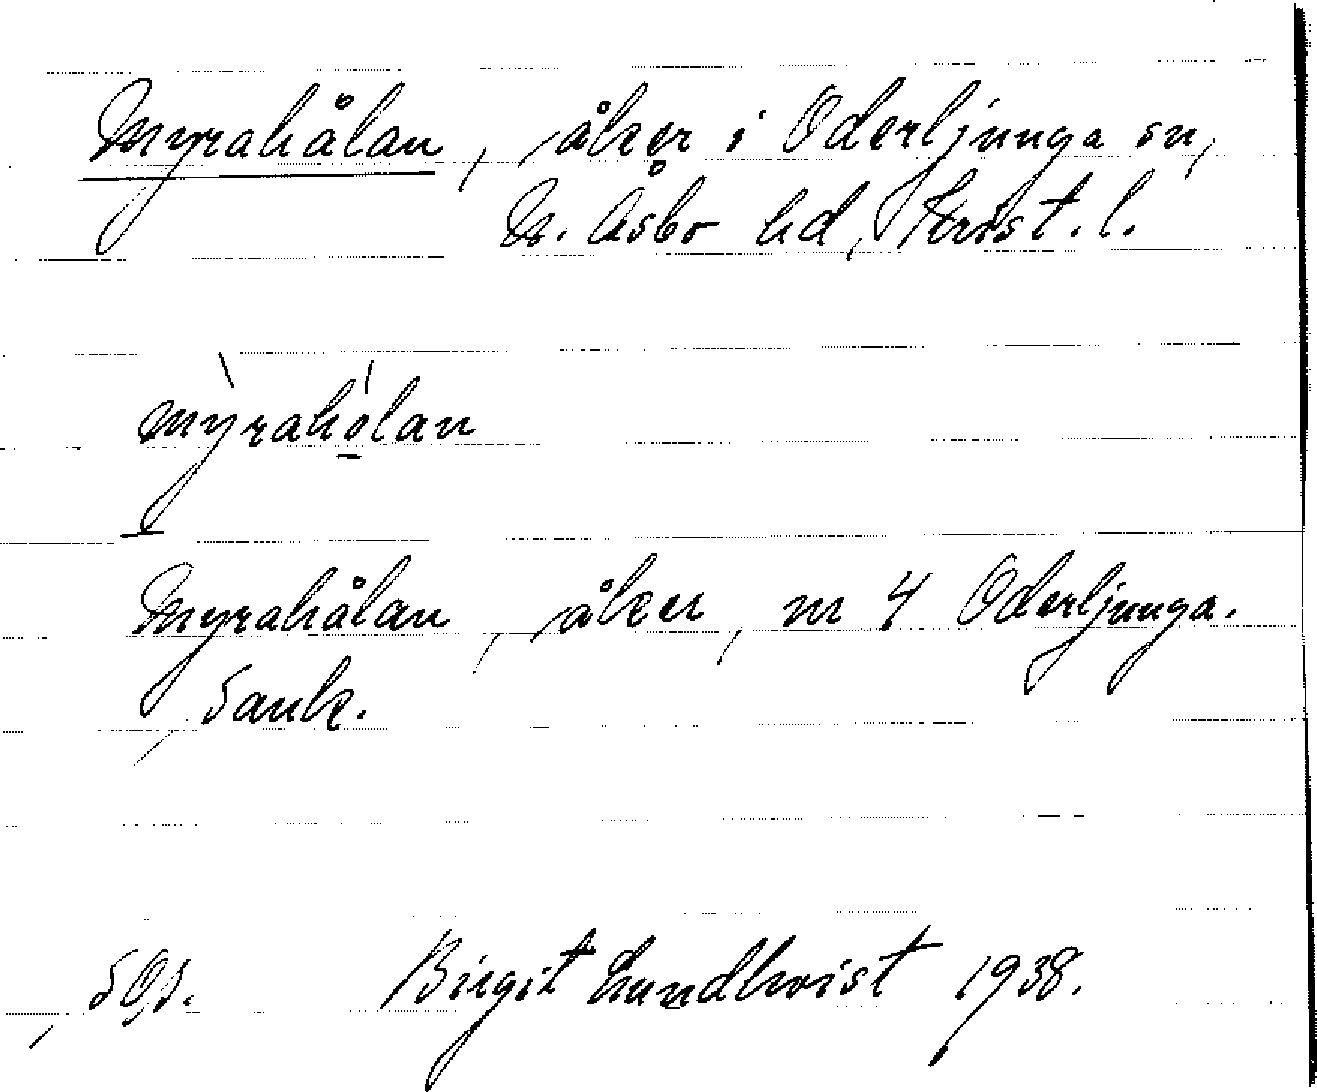 Myrahålan, åker i Oderljunga sn,
N. Åsbo hd, Krist. l.
mỳrahólan
Myrahålan, åker, nr 4 Oderljunga.
Sank.
Birgit Lundkvist 1938.